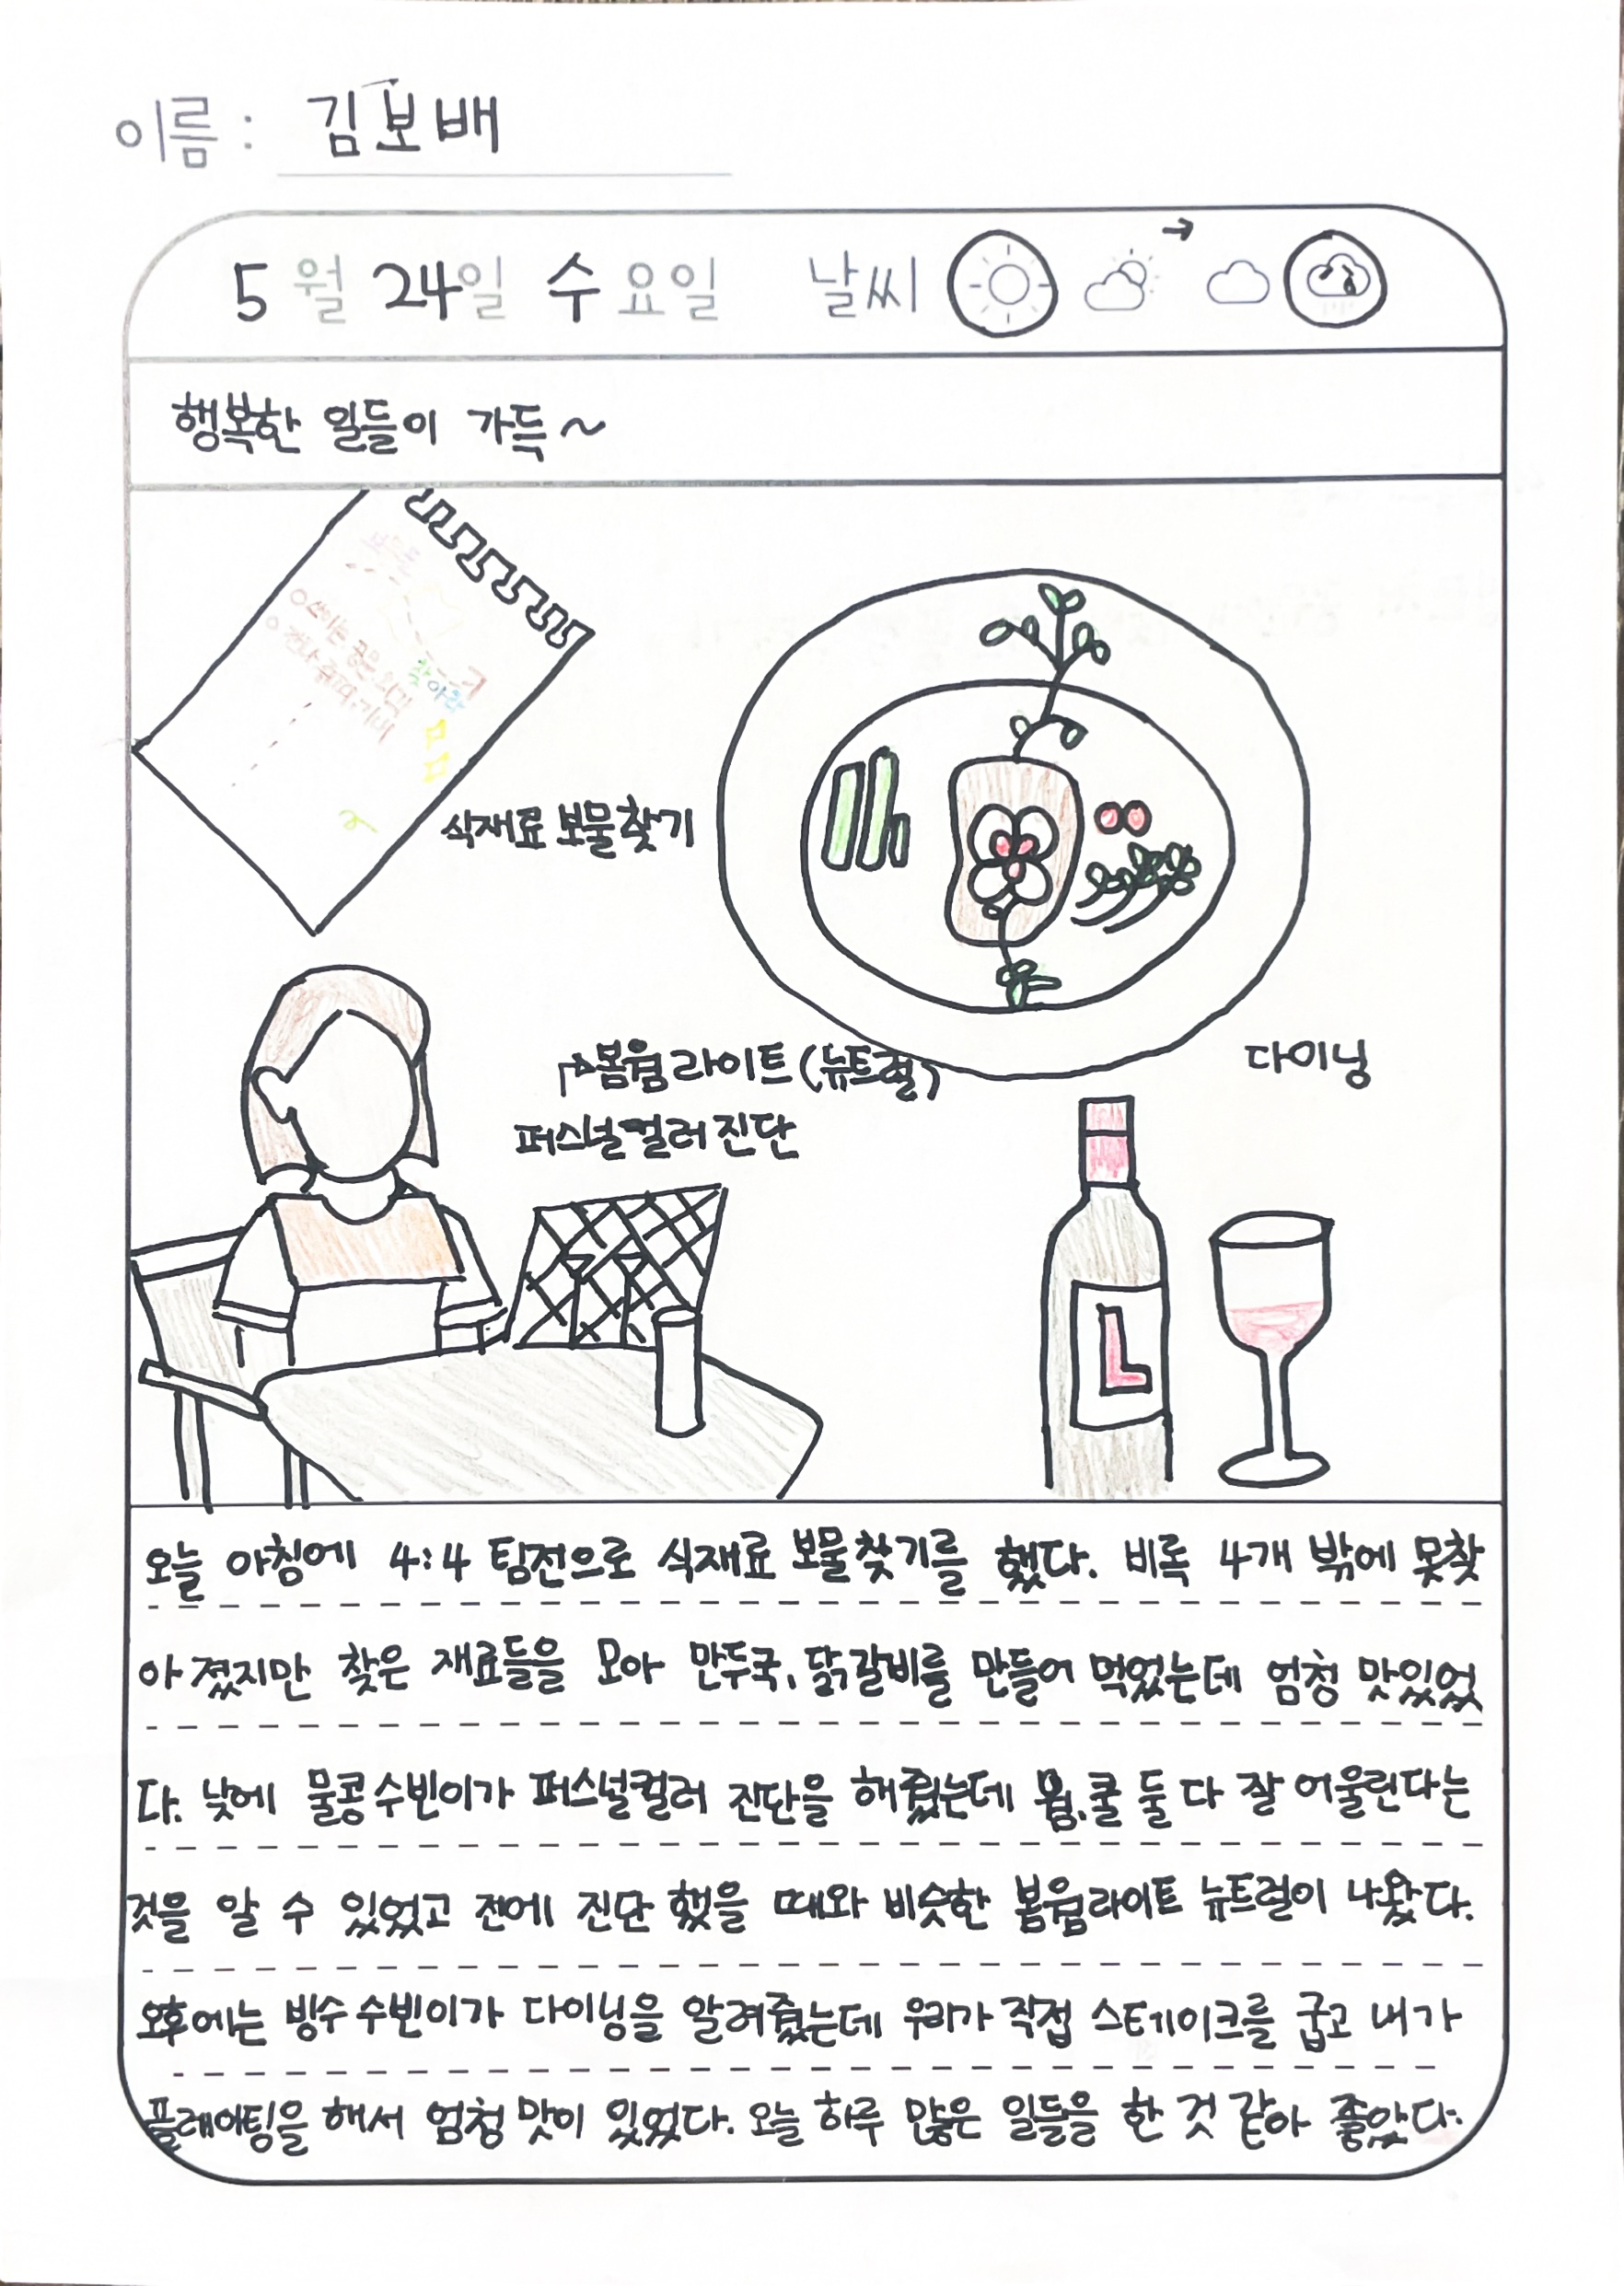 이름 : 김보배
5월 24일 수요일 날씨
행복한 일들이 가득~
보물
찾아라
식재료 보물찾기
봄웜라이트(뉴트럴)
퍼스널컬러 진단
다이닝
L
오늘 아침에 4:4 팀전으로 식재료 보물찾기를 했다. 비록 4개 밖에 못찾
아졌지만 찾은 재료들을 모아 만두국, 닭갈비를 만들어 먹었는데 엄청 맛있었
다. 낮에 물콩수빈이가 퍼스널컬러 진단을 해줬는데 웜,쿨 둘 다 잘 어울린다는
것을 알 수 있었고 전에 진단 했을 때와 비슷한 봄웜라이트 뉴트럴이 나왔다.
오후에는 빙수수빈이가 다이닝을 알려줬는데 우리가 직접 스테이크를 굽고 내가
플레이팅을 해서 엄청 맛이 있었다. 오늘 하루 많은 일들을 한 것 같아 좋았다.